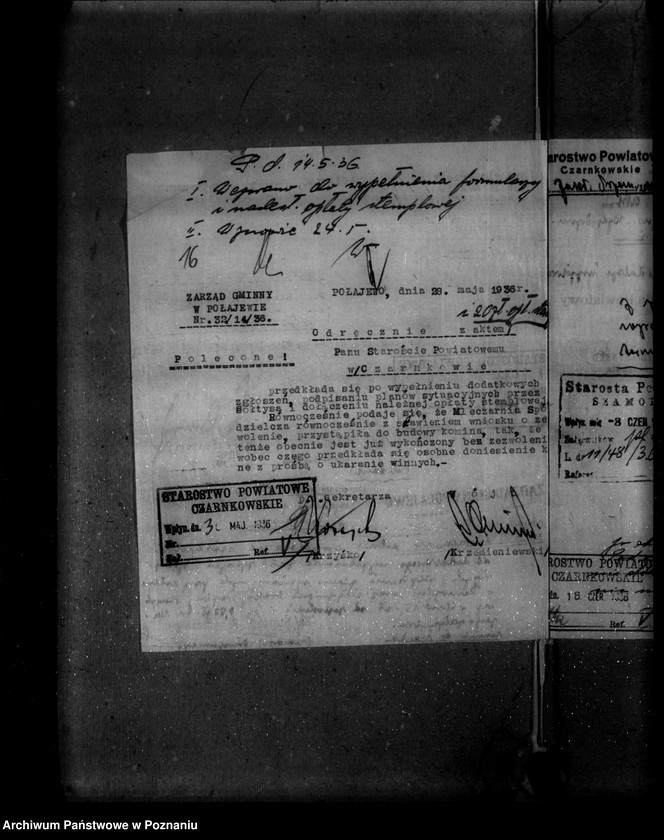 P. d. 14.5.36.
I. Wezwano do wypełnienia formularzy
i nadesł. opłaty stemplowej
II. Wznowić 24.5.
16
ZARZĄD GMINNY
W POŁAJEWIE
Nr.32/14/36.
POŁAJEWO, dnia 28. maja 1936r.
i 20zł opł.
Odręcznie z aktem
Polecone!
Panu Staroście Powiatowemu
w/Czarnkowie
przedkłada się po wypełnieniu dodatkowych
zgłoszeń, podpisaniu planów sytuacyjnych przez
sołtysa i dołączeniu należnej opłaty stemplowej
Równocześnie podaje się, że Mleczarnia Spó
dzielcza równocześnie z stawieniem wniosku o ze
wolenie, przystąpiła do budowy komina, tak, że
tenże obecnie jest już wykończony bez zezwoleni
wobec czego przedkłada się osobne doniesienie k
ne z prośbą o ukaranie winnych.-
STAROSTWO POWIATOWE
CZARNKOWSKIE
Wpłyn. dn. 30 MAJ. 1936
Nr.
Zał. Ref. V
Sekretarza
/Krzyśko/
/Krzemieniewski/
Starostwo Powiatow
Czarnkowskie
Starosta Po
SZAMO
Wpłyn. dnia -8 CZER
Załączników
L. dz.
Referat
ROSTWO POWIATO
CZARNKOWSKIE
dn. 18. CZE. 1936
Ref. V
Archiwum Państwowe w Poznaniu